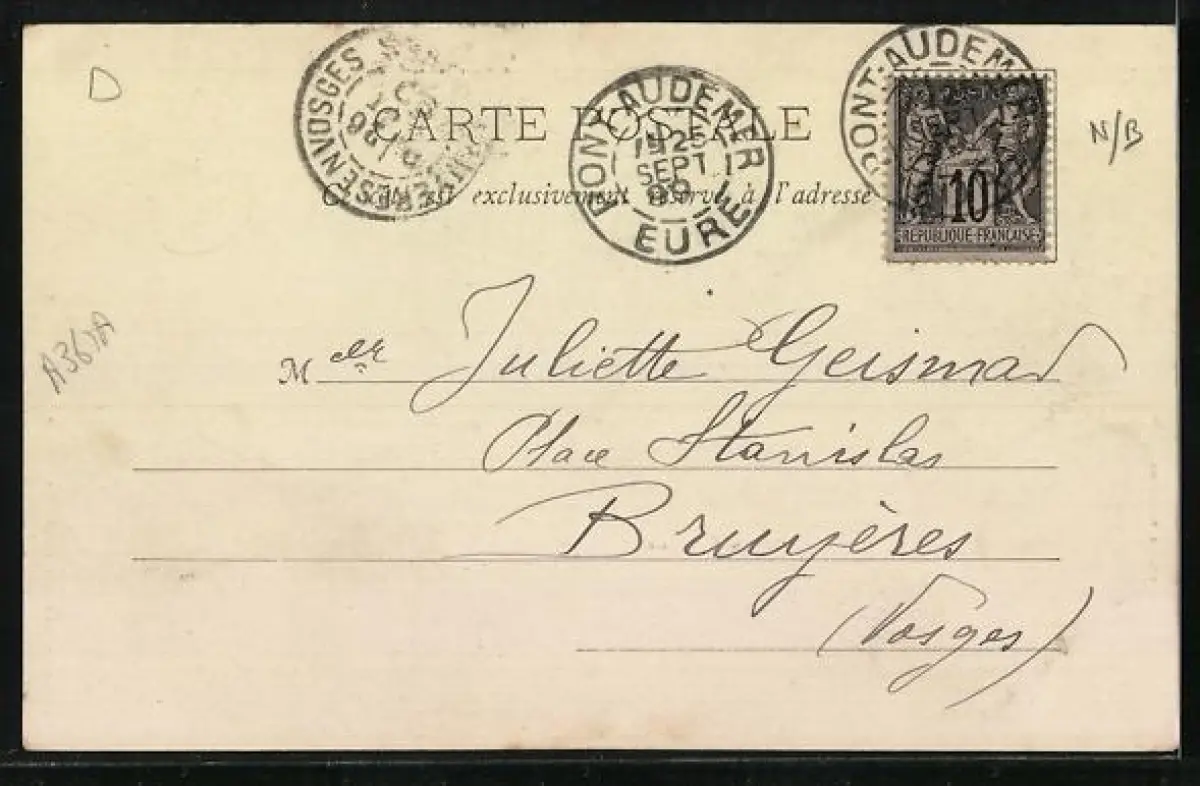 D
CARTE POSTALE
N/B
Ce côté est exclusivement réservé à l'adresse
BRUYERES EN VOSGES
PONT-AUDEMER
25
SEPT
EURE
PONT-AUDEMER
10
REPUBLIQUE FRANÇAISE
Melle Juliette Geismar
Place Stanislas
Bruyères
(Vosges)